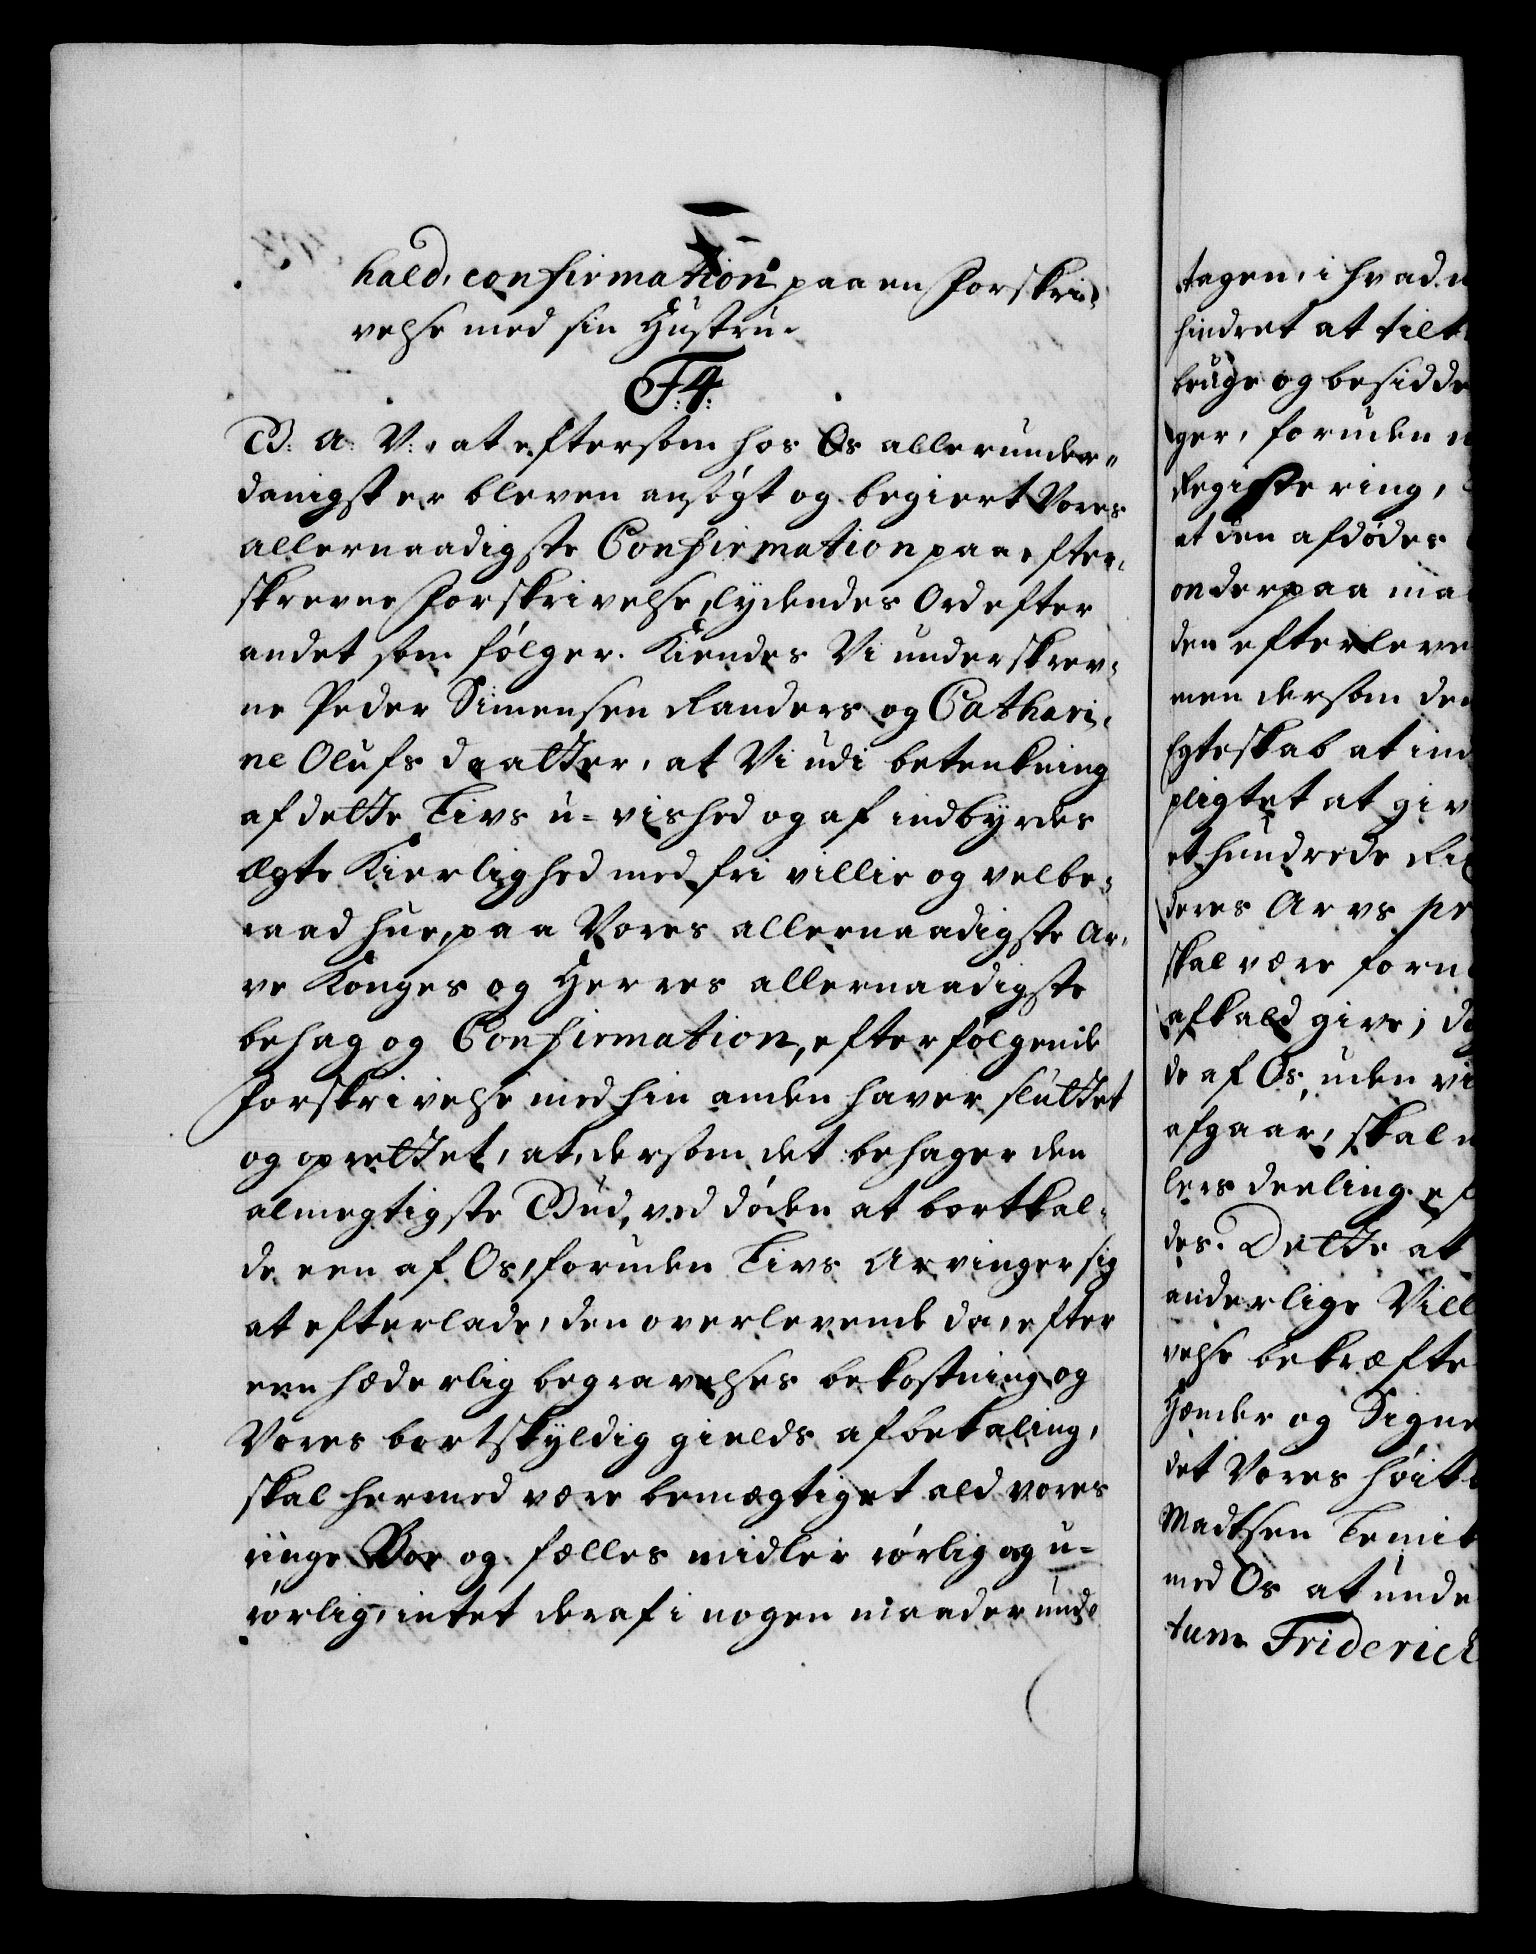 hald, confirmation paa en Forskri-
velse med sin Hustru.
F4.
G: A: V: at eftersom hos Os allerunder-
danigst er bleven ansøgt og begiert Vores
allernaadigste Confirmation paa efter-
skrevne Forskrivelse, lydendes Ord efter
andet som følger. Kiendes Vi underskrev-
ne Peder Simensen Randers og Cathari-
ne Olufs daatter, at Vi udi betenkning
af dette Livs u-vished og af indbyrdes
Egte Kierlighed med fri villie og velbe-
raad hue, paa Vores allernaadigste Ar-
ve Konges og Herres allernaadigste
behag og Confirmation, efterfølgende
Forskrivelse med hin anden haver sluttet
og oprettet, at, dersom det behager den
almegtigste Gud, ved døden at bortkal-
de een af Os, foruden Livs Arvinger sig
at efterlade, den overlevende da, efter
een hæderlig begravelses bekostning og
Vores bortskyldig gields afbetaling,
skal hermed være bemægtiget ald vores
ringe Boe og fælles midler rørlig og u-
rørlig, intet deraf i nogen maader und-
tagen, i hvad
hindret at tilt
bruge og besidde
ger, foruden
Registering,
at den afdødes
onderpaa ma
den efterleve
men dersom den
Egteskab at ind
pligtet at giv
et hundrede Rix
deres Arvs pr
skal være forn
afkald give; da
de af Os, uden vi
afgaar, skal
lers deeling ef
des. Dette at
anderlige Vill
velse bekræfte
Hænder og Signe
det Vores høit
Madtsen Lemit
med Os at unde
tum Friderich